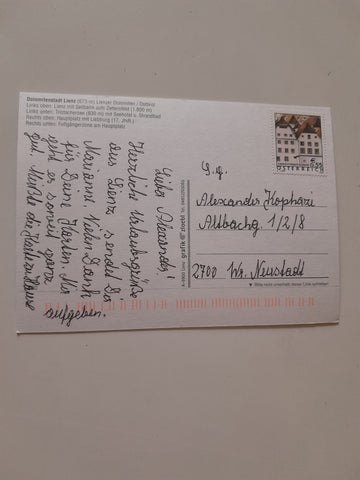 Dolomitenstadt Lienz (673 m) Lienzer Dolomiten / Osttirol
Links oben: Lienz mit Seilbahn aufs Zettersfeld (1.800 m)
Links unten: Tristachersee (830 m) mit Seehotel u. Strandbad
Rechts oben: Hauptplatz mit Liebburg (17. Jhdt.)
Rechts unten: Fußgängerzone am Hauptplatz
Lieber Alexander!
Herzliche Urlaubsgrüße
aus Lienz, sendet Dir
Marianne. Vielen Dank
für Deine Karten. Mir
geht es soweit ganz
gut. Mußte die Karte zu Hause
aufgeben.
A-9900 Lienz grafik zloebl
ÖSTERREICH
Alexander
Altbachg. 1/2/8
2700 Wr. Neustadt
▼ Bitte nicht unterhalb dieser Linie schreiben